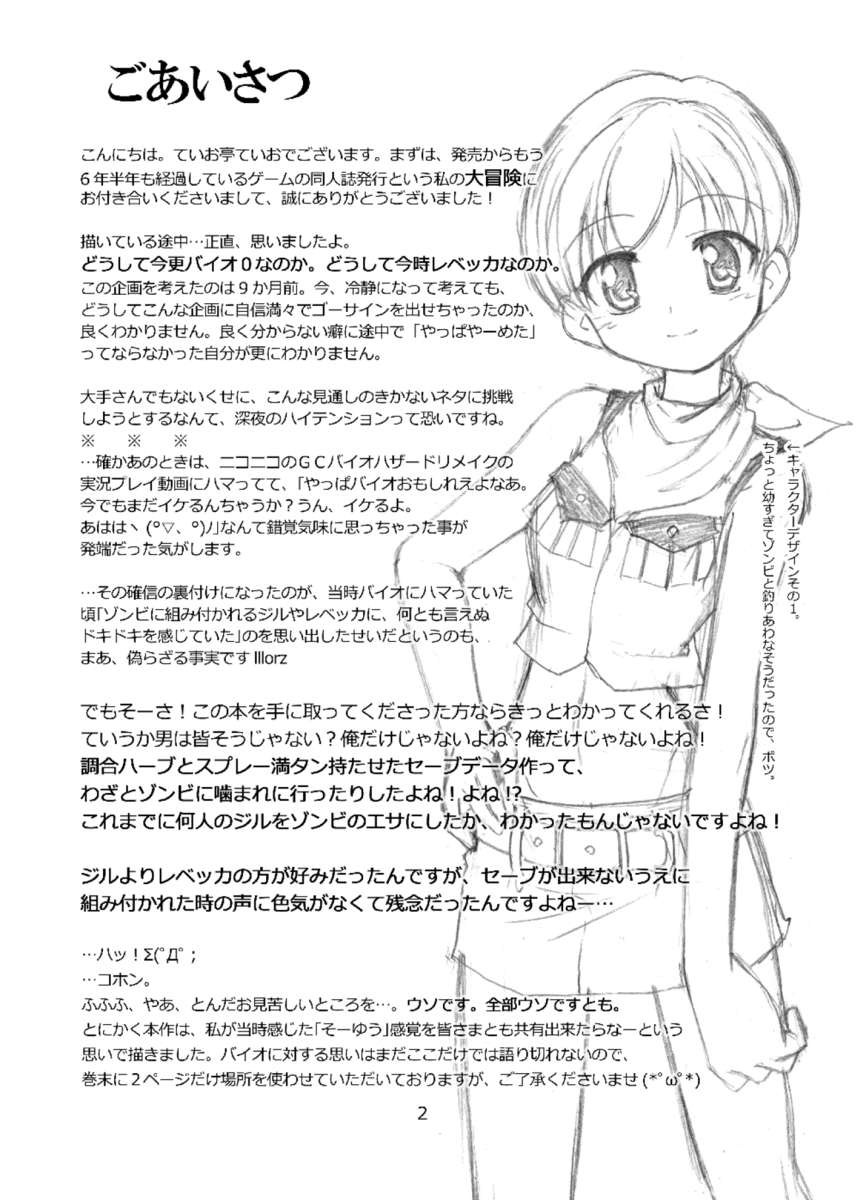 ごあいさつ
こんにちは。ていお亭ていおでございます。まずは、発売からもう
６年半年も経過しているゲームの同人誌発行という私の大冒険に
お付き合いくださいまして、誠にありがとうございました！
描いている途中…正直、思いましたよ。
どうして今更バイオ０なのか。どうして今時レベッカなのか。
この企画を考えたのは９か月前。今、冷静になって考えても、
どうしてこんな企画に自信満々でゴーサインを出せちゃったのか、
良くわかりません。良く分からない癖に途中で「やっぱやーめた」
ってならなかった自分が更にわかりません。
大手さんでもないくせに、こんな見通しのきかないネタに挑戦
しようとするなんて、深夜のハイテンションって恐いですね。
※　※　※
…確かあのときは、ニコニコのＧＣバイオハザードリメイクの
実況プレイ動画にハマってて、「やっぱバイオおもしれえよなあ。
今でもまだイケるんちゃうか？うん、イケるよ。
あははヽ(°▽、°)ﾉ」なんて錯覚気味に思っちゃった事が
発端だった気がします。
…その確信の裏付けになったのが、当時バイオにハマっていた
頃「ゾンビに組み付かれるジルやレベッカに、何とも言えぬ
ドキドキを感じていた」のを思い出したせいだというのも、
まあ、偽らざる事実です lllorz
でもそーさ！この本を手に取ってくださった方ならきっとわかってくれるさ！
ていうか男は皆そうじゃない？俺だけじゃないよね？俺だけじゃないよね！
調合ハーブとスプレー満タン持たせたセーブデータ作って、
わざとゾンビに噛まれに行ったりしたよね！よね！？
これまでに何人のジルをゾンビのエサにしたか、わかったもんじゃないですよね！
ジルよりレベッカの方が好みだったんですが、セーブが出来ないうえに
組み付かれた時の声に色気がなくて残念だったんですよねー…
…ハッ！Σ(ﾟДﾟ；
…コホン。
ふふふ、やあ、とんだお見苦しいところを…。ウソです。全部ウソですとも。
とにかく本作は、私が当時感じた「そーゆう」感覚を皆さまとも共有出来たらなーという
思いで描きました。バイオに対する思いはまだここだけでは語り切れないので、
巻末に２ページだけ場所を使わせていただいておりますが、ご了承くださいませ(*ﾟωﾟ*)
←キャラクターデザインその１。
ちょっと幼すぎてゾンビと釣りあわなそうだったので、ボツ。
2